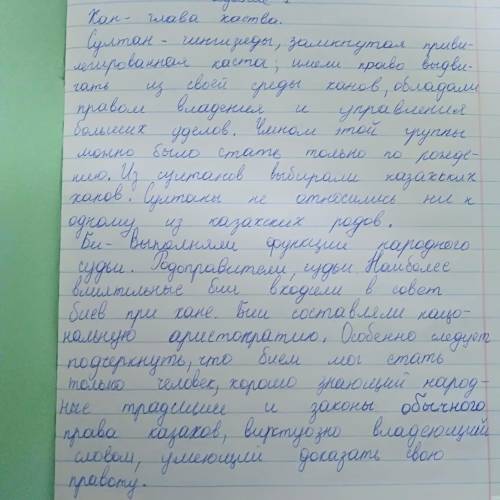 Хан- глава ханства.
Султан - чингизиды, замкнутая приви-
легированная каста; имели право выдви-
гать из своей среды ханов, обладали
правом владения и управления
больших уделов. Членом этой группы
можно было стать только по рожде-
нию. Из султанов выбирали казахских
ханов. Султаны не относились ни к
одному из казахских родов.
Би- Выполняли функции народного
судьи. Родоправители, судьи. Наиболее
влиятельные бии входили в совет
биев при хане. Бии составляли нацо-
нальную аристократию. Особенно следует
подчеркнуть, что бием мог стать
только человек, хорошо знающий народ-
ные традиции и законы обычного
права казахов, виртуозно владеющий
словом, умеющий доказать свою
правоту.